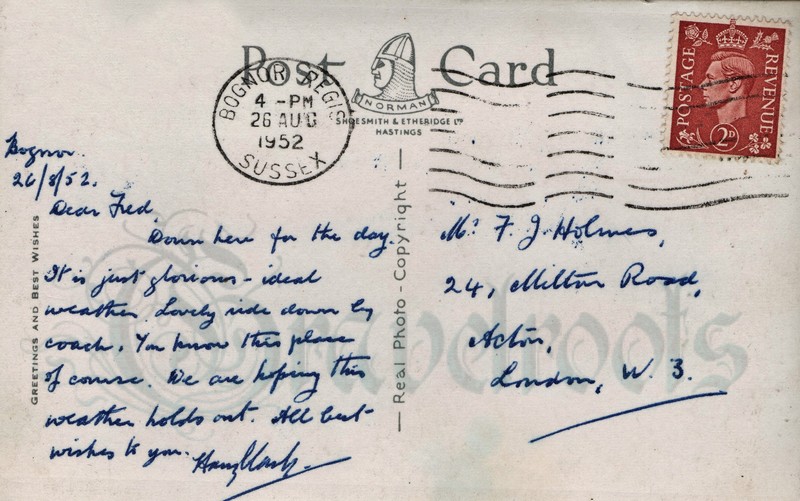 Post Card
NORMAN
SHOESMITH & ETHERIDGE LTD
HASTINGS
BOGNOR REGIS
4 - PM
26 AUG
1952
SUSSEX
POSTAGE
REVENUE
2D
GREETINGS AND BEST WISHES
Real Photo - Copyright
Bognor
26/8/52.
Dear Fred,
Down here for the day.
It is just glorious - ideal
weather. Lovely ride down by
coach. You know this place
of course. We are hoping this
weather holds out. All best
wishes to you.
Mr F. J. Holmes,
24, Milton Road,
Acton,
London, W. 3.
Travelroots